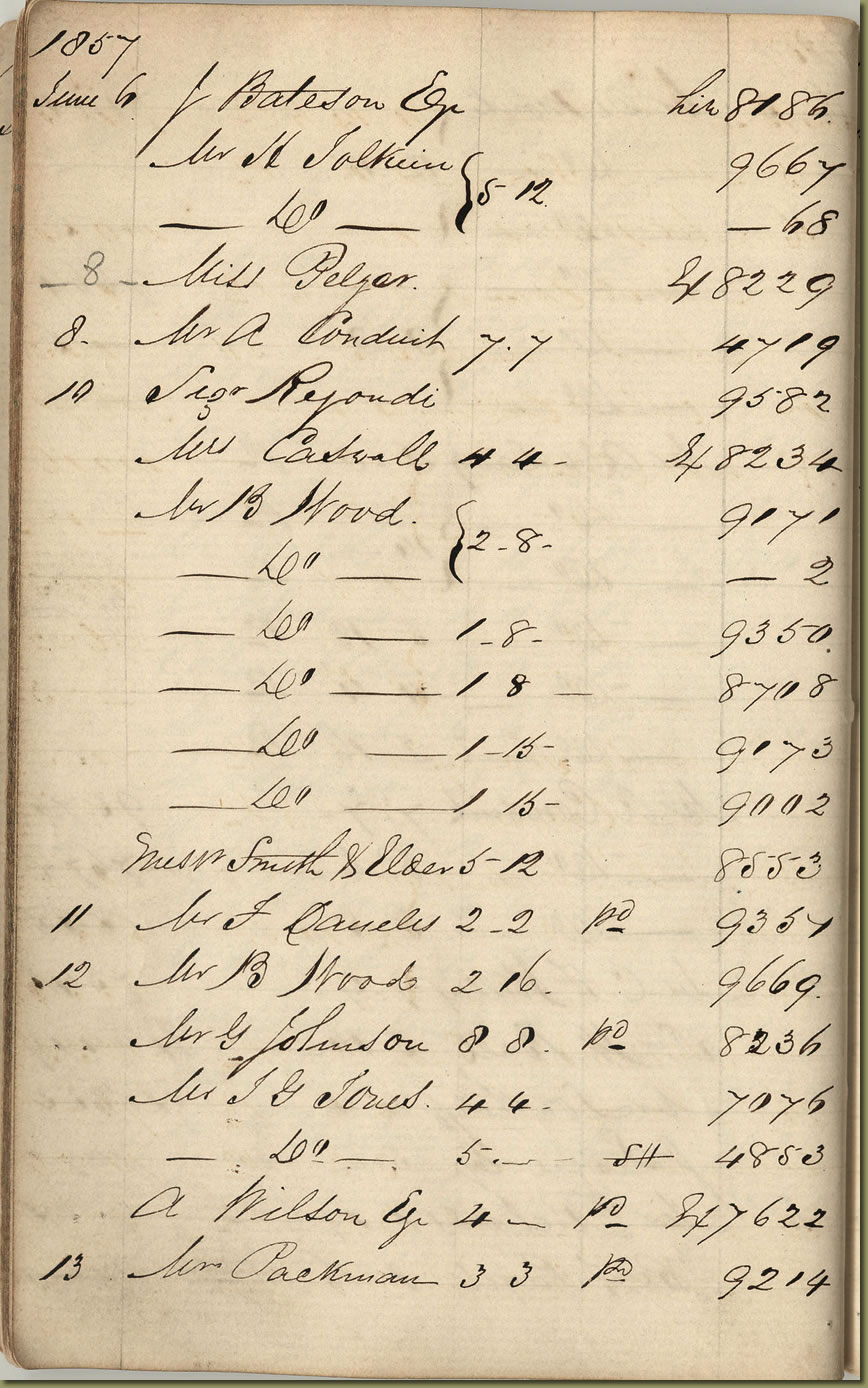 1857
June 6 J Bateson Esq hire 8186.
Mr H Tolkein 9667
5-12.
— Do — — 68
- 8 - Miss Pelzer. Ex 8229
8. Mr A Conduit 7.7 4719
10 Sigr Regondi 9582
Mrs Caswall 4 4 - Ex 8234
Mr B Wood. 9171
2-8-
— Do — — 2
— Do — 1-8- 9350.
— Do — 1 8 — 8708
— Do — 1-15- 9073
— Do — 1 15- 9002
Messrs Smith & Elder 5-12 8553
11 Mr J Daniels 2-2 pd
12 Mr B Wood 2 16. 9669.
Mr G Johnson 8 8. pd 8236
Mr J G Jones. 4 4- 7076
— Do — 5 — SH 4853
A Wilson Esq 4 — pd Ex 7622
13 Mrs Packman 3 3 pd 9214